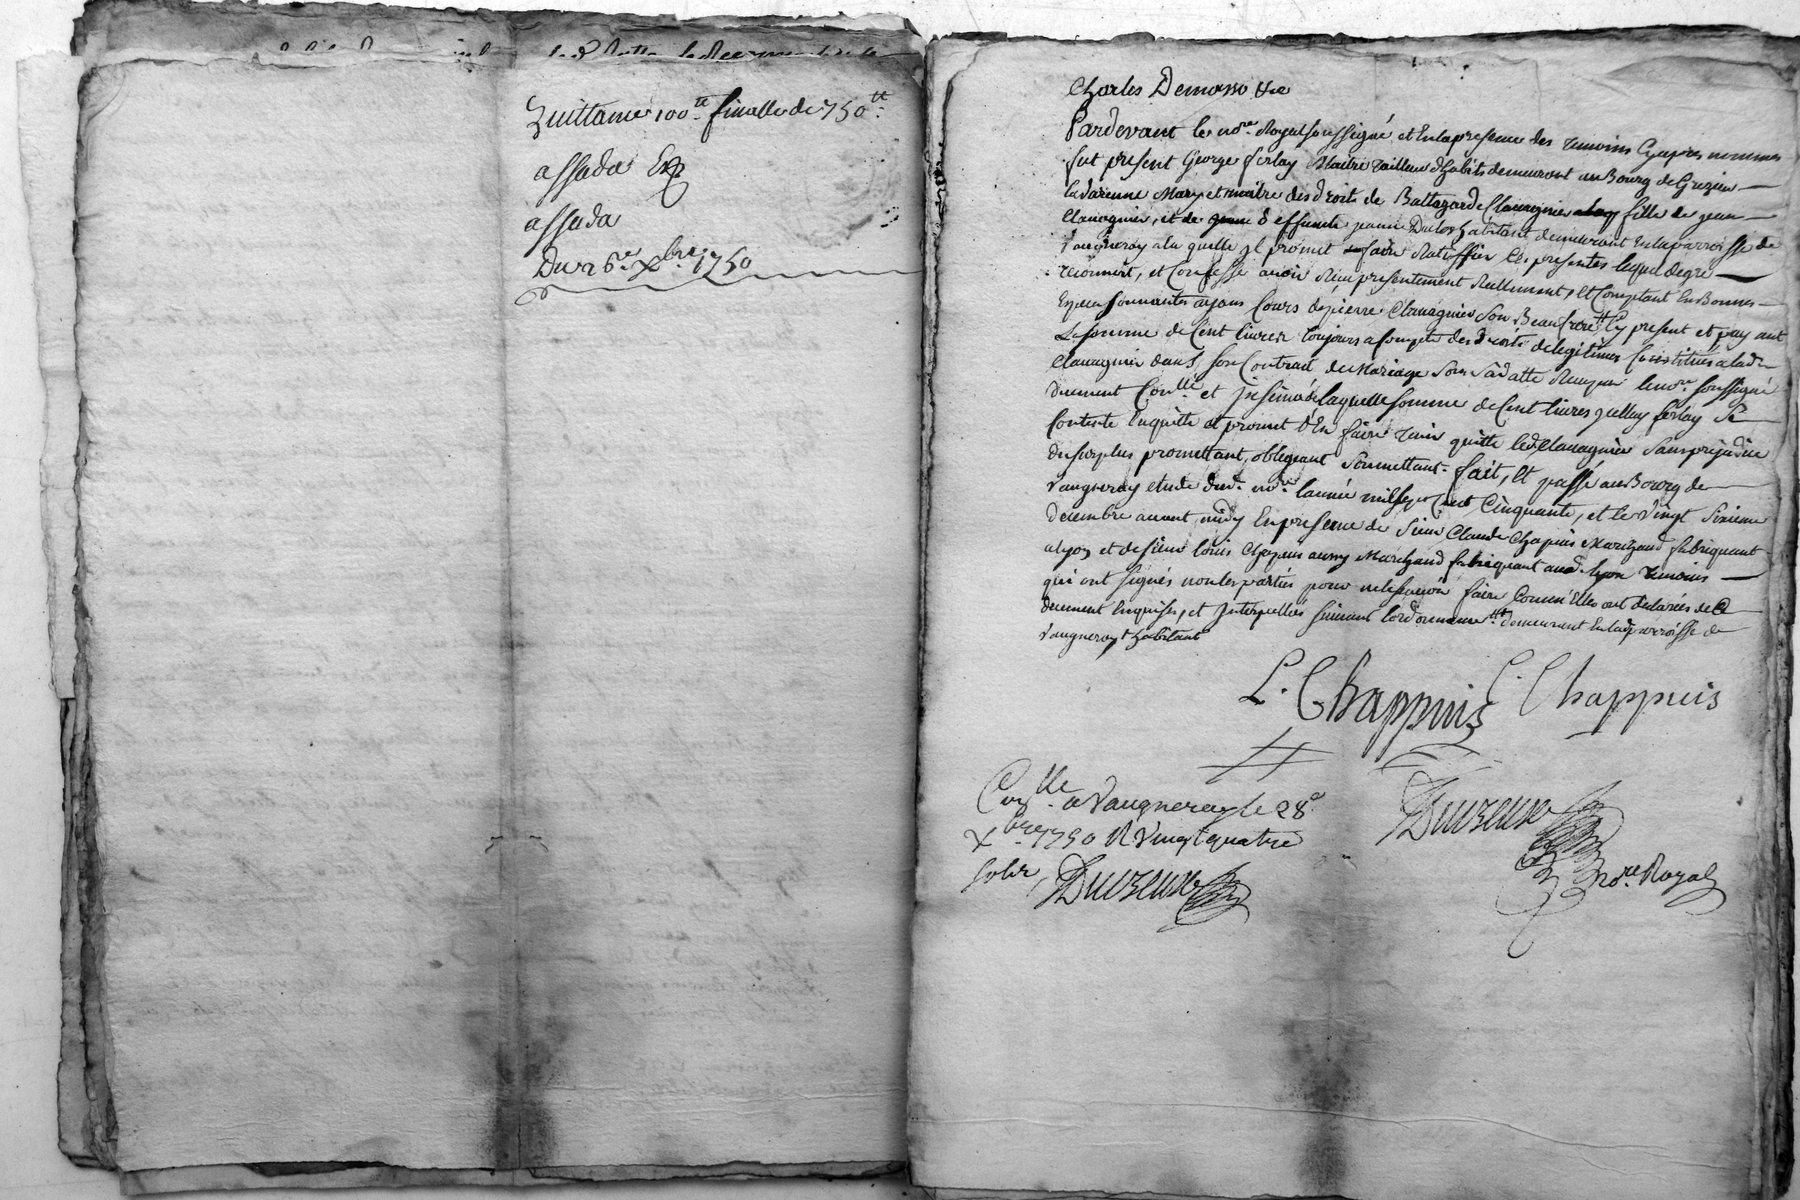 Quittance 100tt finalle de 750tt
assada Exp
assada
Du 26e Xbre 1750
Charles Demasso &e
Pardevant le nore Royal soussigné et En la presence des temoins Cy apres nommes
fut present George ferlay Maitre tailleur d'habits demeurant au Bourg de Grezieu
la Varenne Mary et maitre des droits de Baltazarde Clavagnier fille de jean
Clavagnier, et de deffunte jeanne habitant demeurant En la parroisse de
Vaugneray a la quelle jl promet faire Ratiffier les presentes lequel de gré
reconnoit, et Confesse avoir Reçu presentement Reellement, Et Comptant En Bonnes
Especes sonnantes ayans Cours de pierre Clavagnier Son Beaufrere Cy present et payant
La somme de Cent livres toujours a Compte des droits de legitimes Constitués a lad.
Clavagnier dans son Contrat de Mariage Sous Sa datte Reçu par le nore soussigné
duement Conllé et jnsinué de laquelle somme de Cent livres jcelluy ferlay Se
Contente l'en quitte et promet d'En faire tenir quitte led. Clavagnier Sans prejudice
du surplus promettant, obligeant Soumettant. fait, Et passé au Bourg de
Vaugneray etude dud. nore l'année mil sept Cent Cinquante, et le vingt Sixieme
decembre avant midy En presence de Sieur Claude Chapuis Marchand fabriquant
a lyon et de Sieur louis Chapuis aussy Marchand fabriquant aud. lyon temoins
qui ont signés non les parties pour ne le sçavoir faire Comm'Elles ont declarées de Ce
duement Enquises, et Jnterpellées suivant l'ordonnance tt demeurant En lad. parroisse de
Vaugneray habitant
L. Chappuis C. Chappuis
Conlle a Vaugneray le 28e
Xbre 1750 R Vingt quatre
sols,
nore Royal